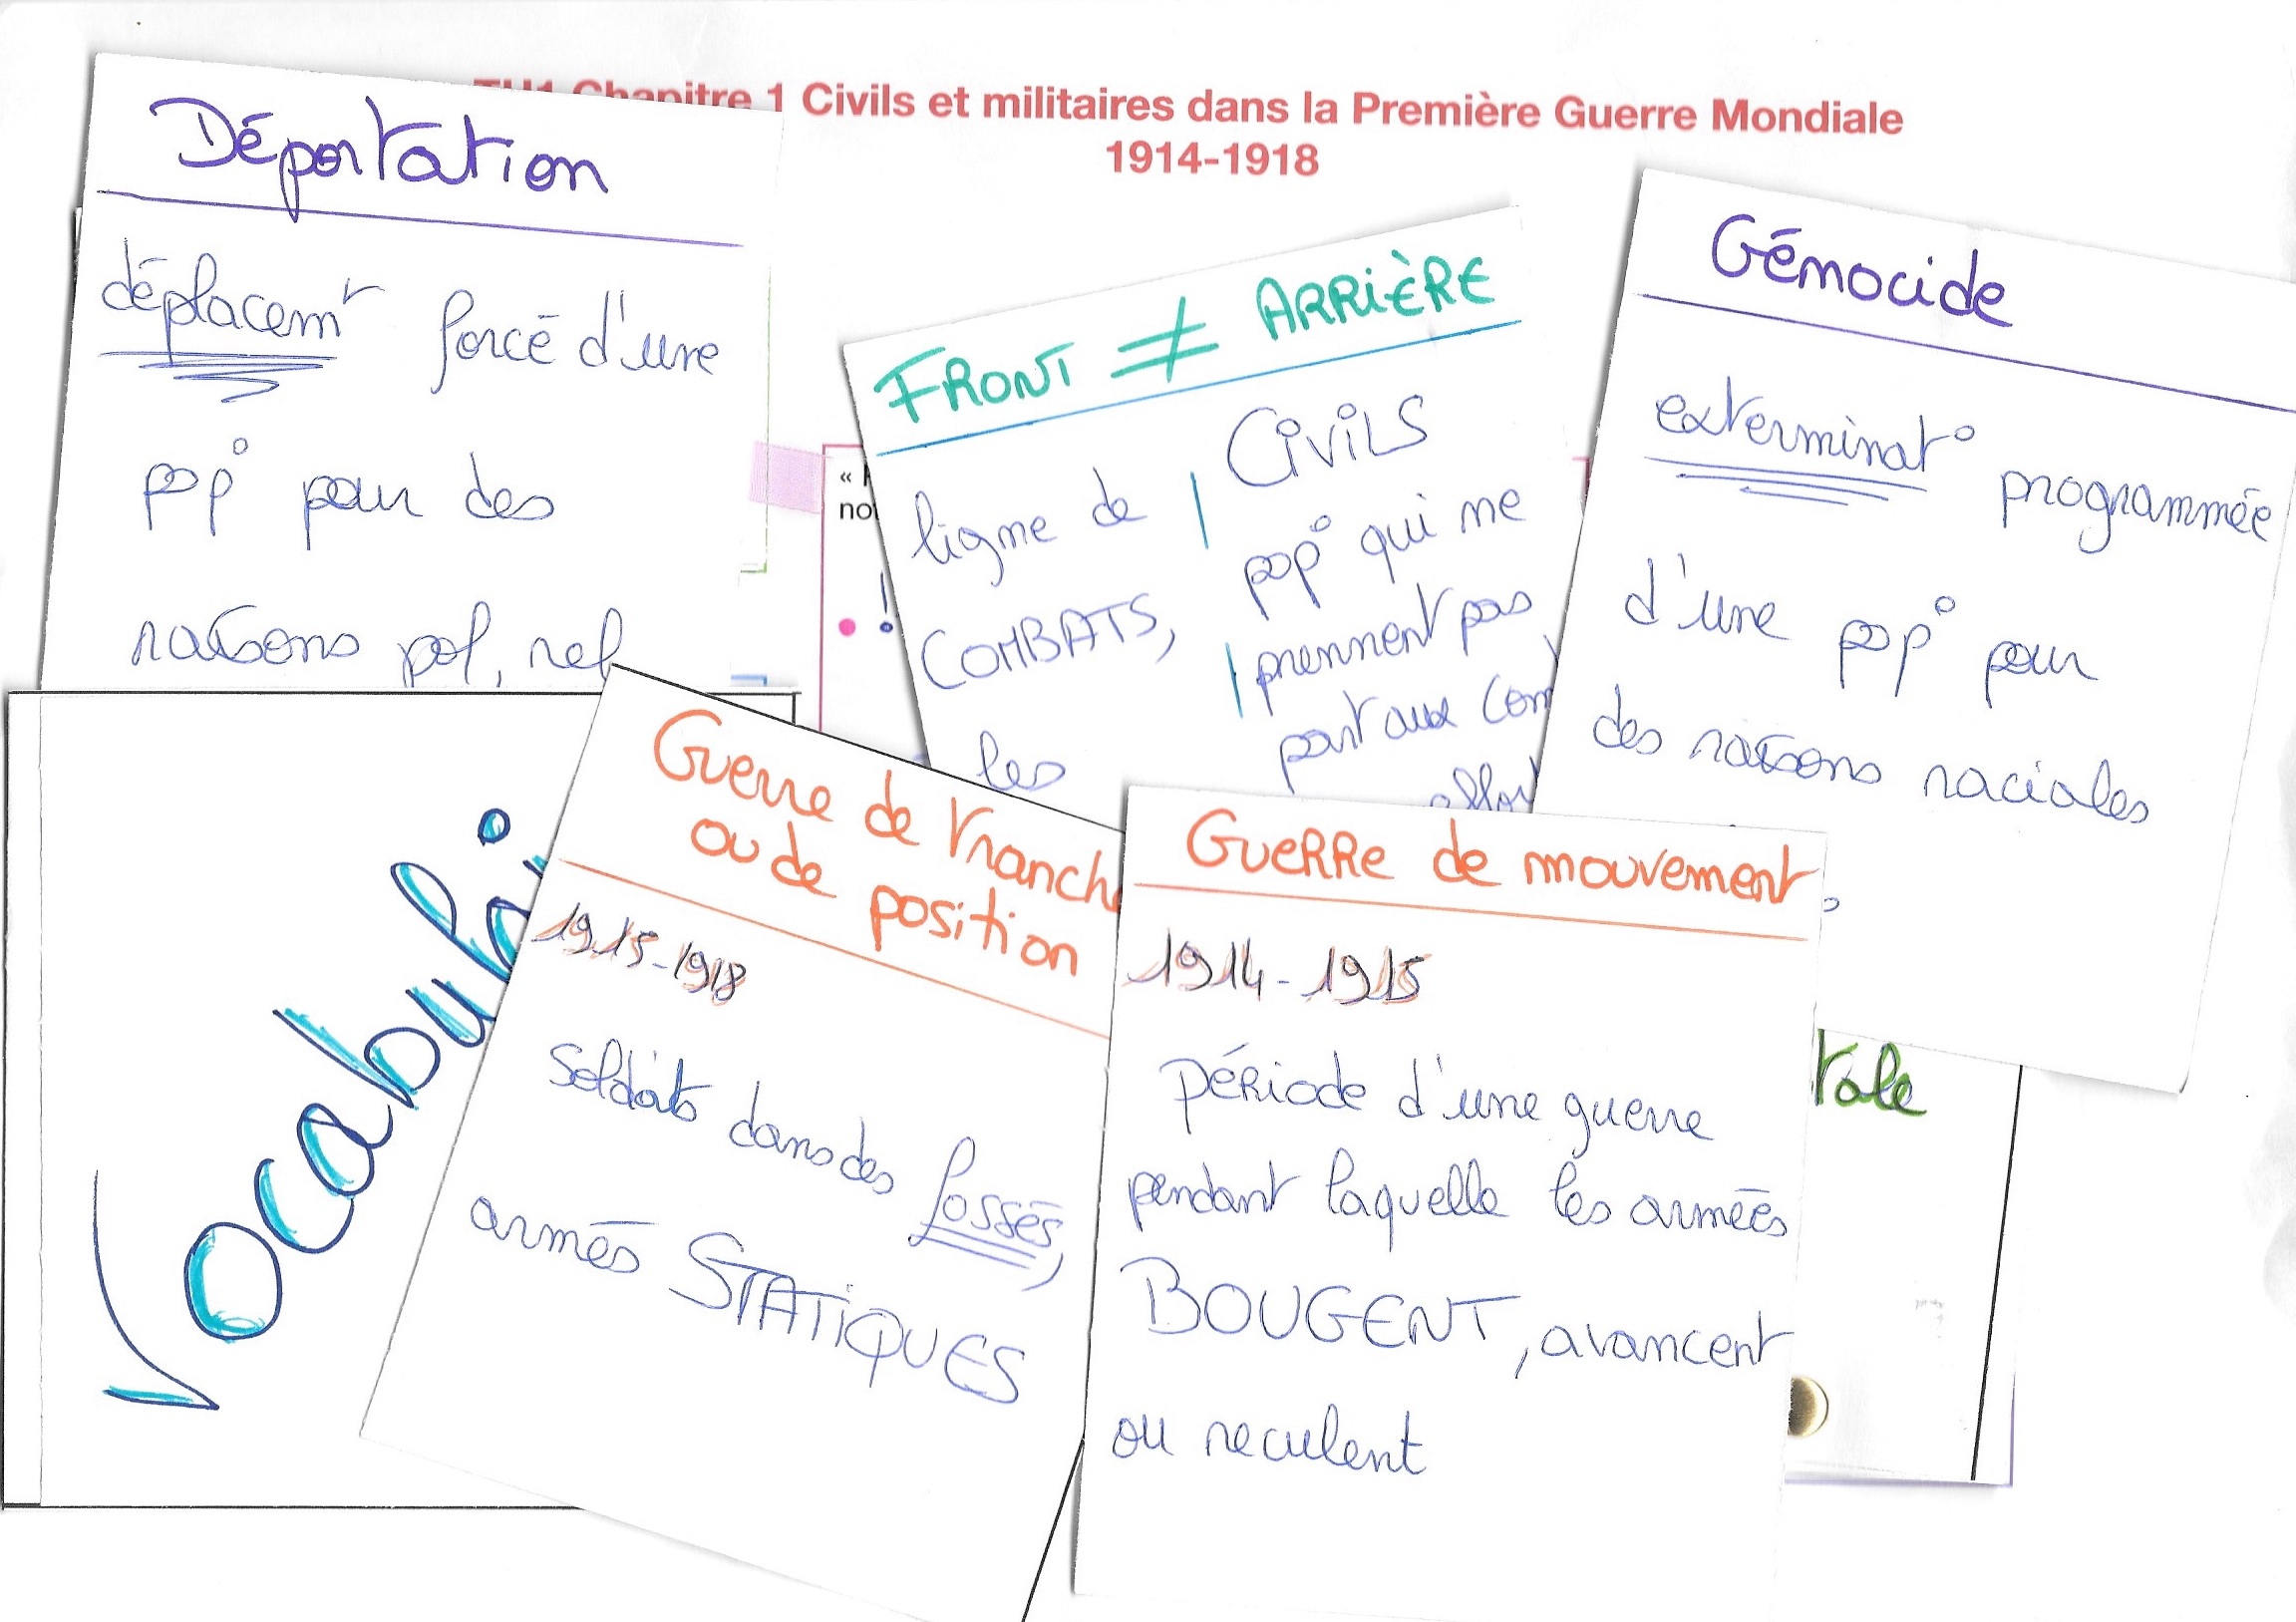 TH1 Chapitre 1 Civils et militaires dans la Première Guerre Mondiale
1914-1918
Déportation
déplacemt forcé d'une
pop° pour des
raisons pol, rel
FRONT ≠ ARRIÈRE
ligne de
COMBATS,
les
CiViLS
pop° qui ne
prennent pas
part aux com
Génocide
exterminat° programmée
d'une pop° pour
des raisons raciales
«
no
Vocabul
Guerre de tranch
ou de position
1915-1918
Soldats dans des fossés,
armés STATiQUES
GueRRe de mouvement
1914-1915
péRiode d'une guerre
pendant laquelle les armées
BOUGENT, avancent
ou reculent
tale